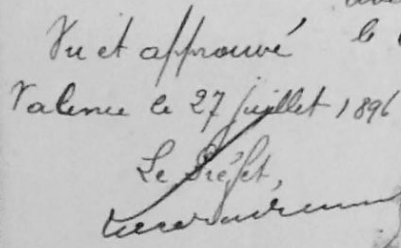 Vu et approuvé
Valence le 27 juillet 1896
Le Préfet,